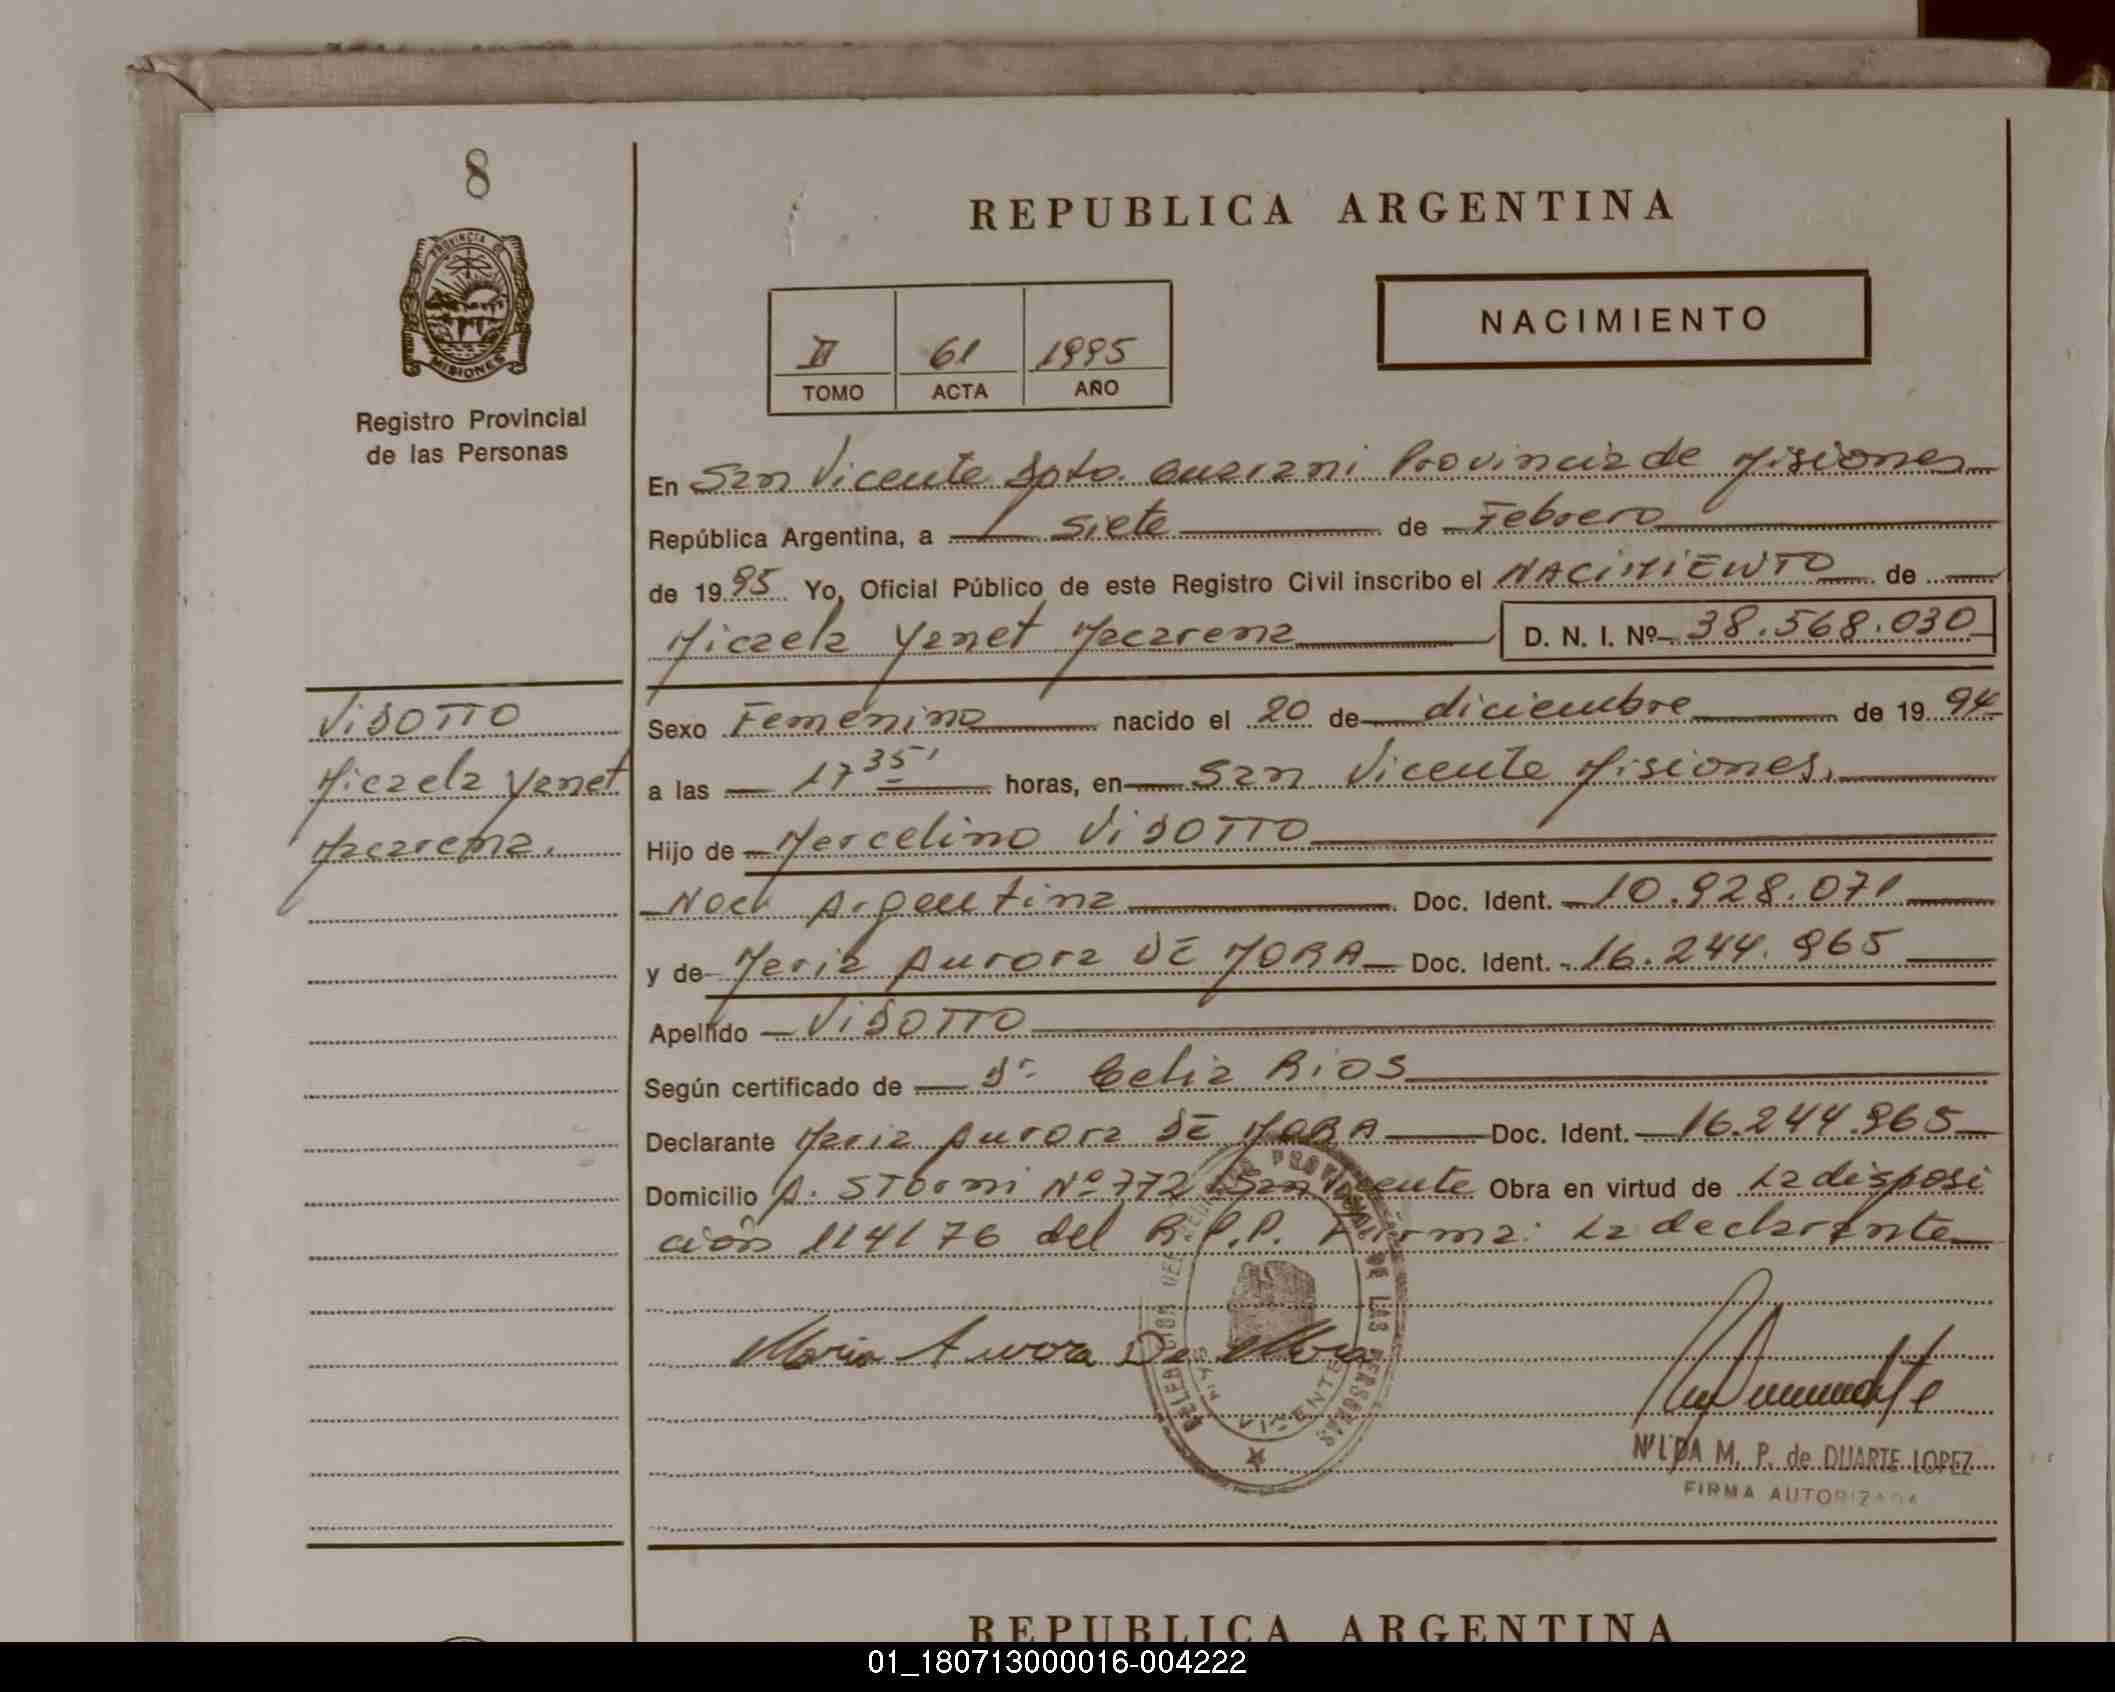 8
PROVINCIA DE
MISIONES
Registro Provincial
de las Personas
REPUBLICA ARGENTINA
II 61 1995
TOMO ACTA AÑO
NACIMIENTO
En San Vicente Dpto. Guarani Provincia de Misiones
República Argentina, a siete de Febrero
de 1995 Yo, Oficial Público de este Registro Civil inscribo el NACIMIENTO de
Micaela Yanet Macarena D. N. I. Nº 38.568.030
VISOTTO
Micaela Yanet
Macarena.
Sexo Femenino nacido el 20 de diciembre de 1994
a las 17 35' horas, en San Vicente Misiones.
Hijo de Marcelino VISOTTO
Nac. Argentina Doc. Ident. 10.928.071
y de Maria Aurora DE MORA Doc. Ident. 16.244.965
Apellido VISOTTO
Según certificado de Dr. Celia Rios
Declarante Maria Aurora DE MORA Doc. Ident. 16.244.965
Domicilio A. Storni Nº 772 San Vicente Obra en virtud de La disposi
ción 114/76 del R.P.P. Firma: La declarante
Maria Aurora De Mora
DELEGACION DEL REGISTRO PROVINCIAL DE LAS PERSONAS
SAN VICENTE
NILDA M. P. de DUARTE LOPEZ
FIRMA AUTORIZADA
REPUBLICA ARGENTINA
01_180713000016-004222